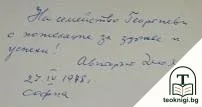 На семейство Георгиеви
с пожелание за здраве и
успехи!
27. IV 1978 г.
София
teoknigi.bg